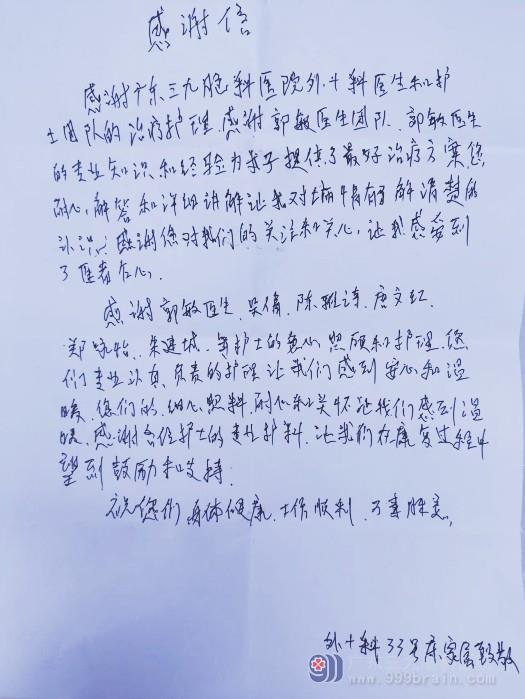 感谢信
感谢广东三九脑科医院外十科医生和护
士团队的治疗护理.感谢郭敏医生团队、郭敏医生
的专业知识和经验为亲子提供了最好治疗方案您
耐心解答和详细讲解让我对病情有了解清楚的
认识、感谢您对我们的关注和关心,让我感受到
了医者仁心.
感谢郭敏医生、吴倩、陈雅诗、唐文红、
郑咏怡、朱建城、等护士的悉心照顾和护理.您
们专业认真负责的护理让我们感到安心和温
暖、您们的细心照料,耐心和关怀让我们感到温
暖、感谢各位护士的专业护料,让我们在康复过程中
受到鼓励和支持.
祝您们身体健康、工作顺利、万事胜意,
外十科33号床家属致敬
www.999brain.com